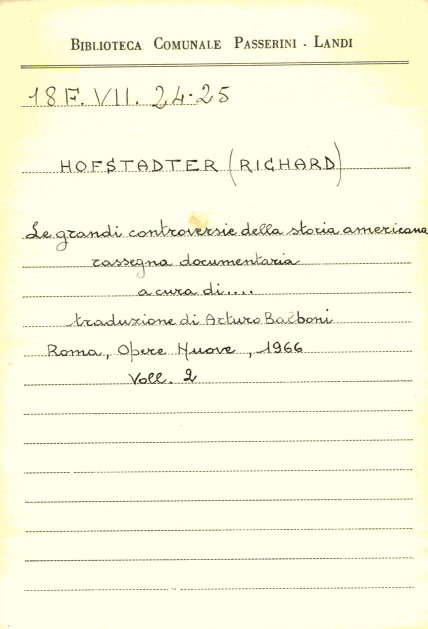 BIBLIOTECA COMUNALE PASSERINI - LANDI
18 F. VII. 24-25
HOFSTADTER (RICHARD)
Le grandi controversie della storia americana
rassegna documentaria
a cura di....
traduzione di Arturo Balboni
Roma, Opere Nuove, 1966
Voll. 2